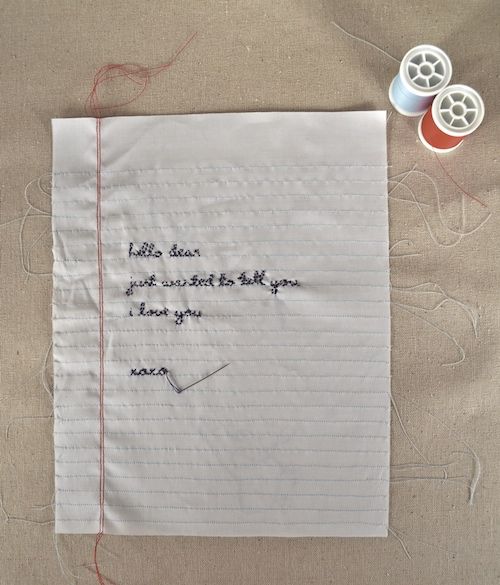 hello dear
just wanted to tell you
i love you
xoxo